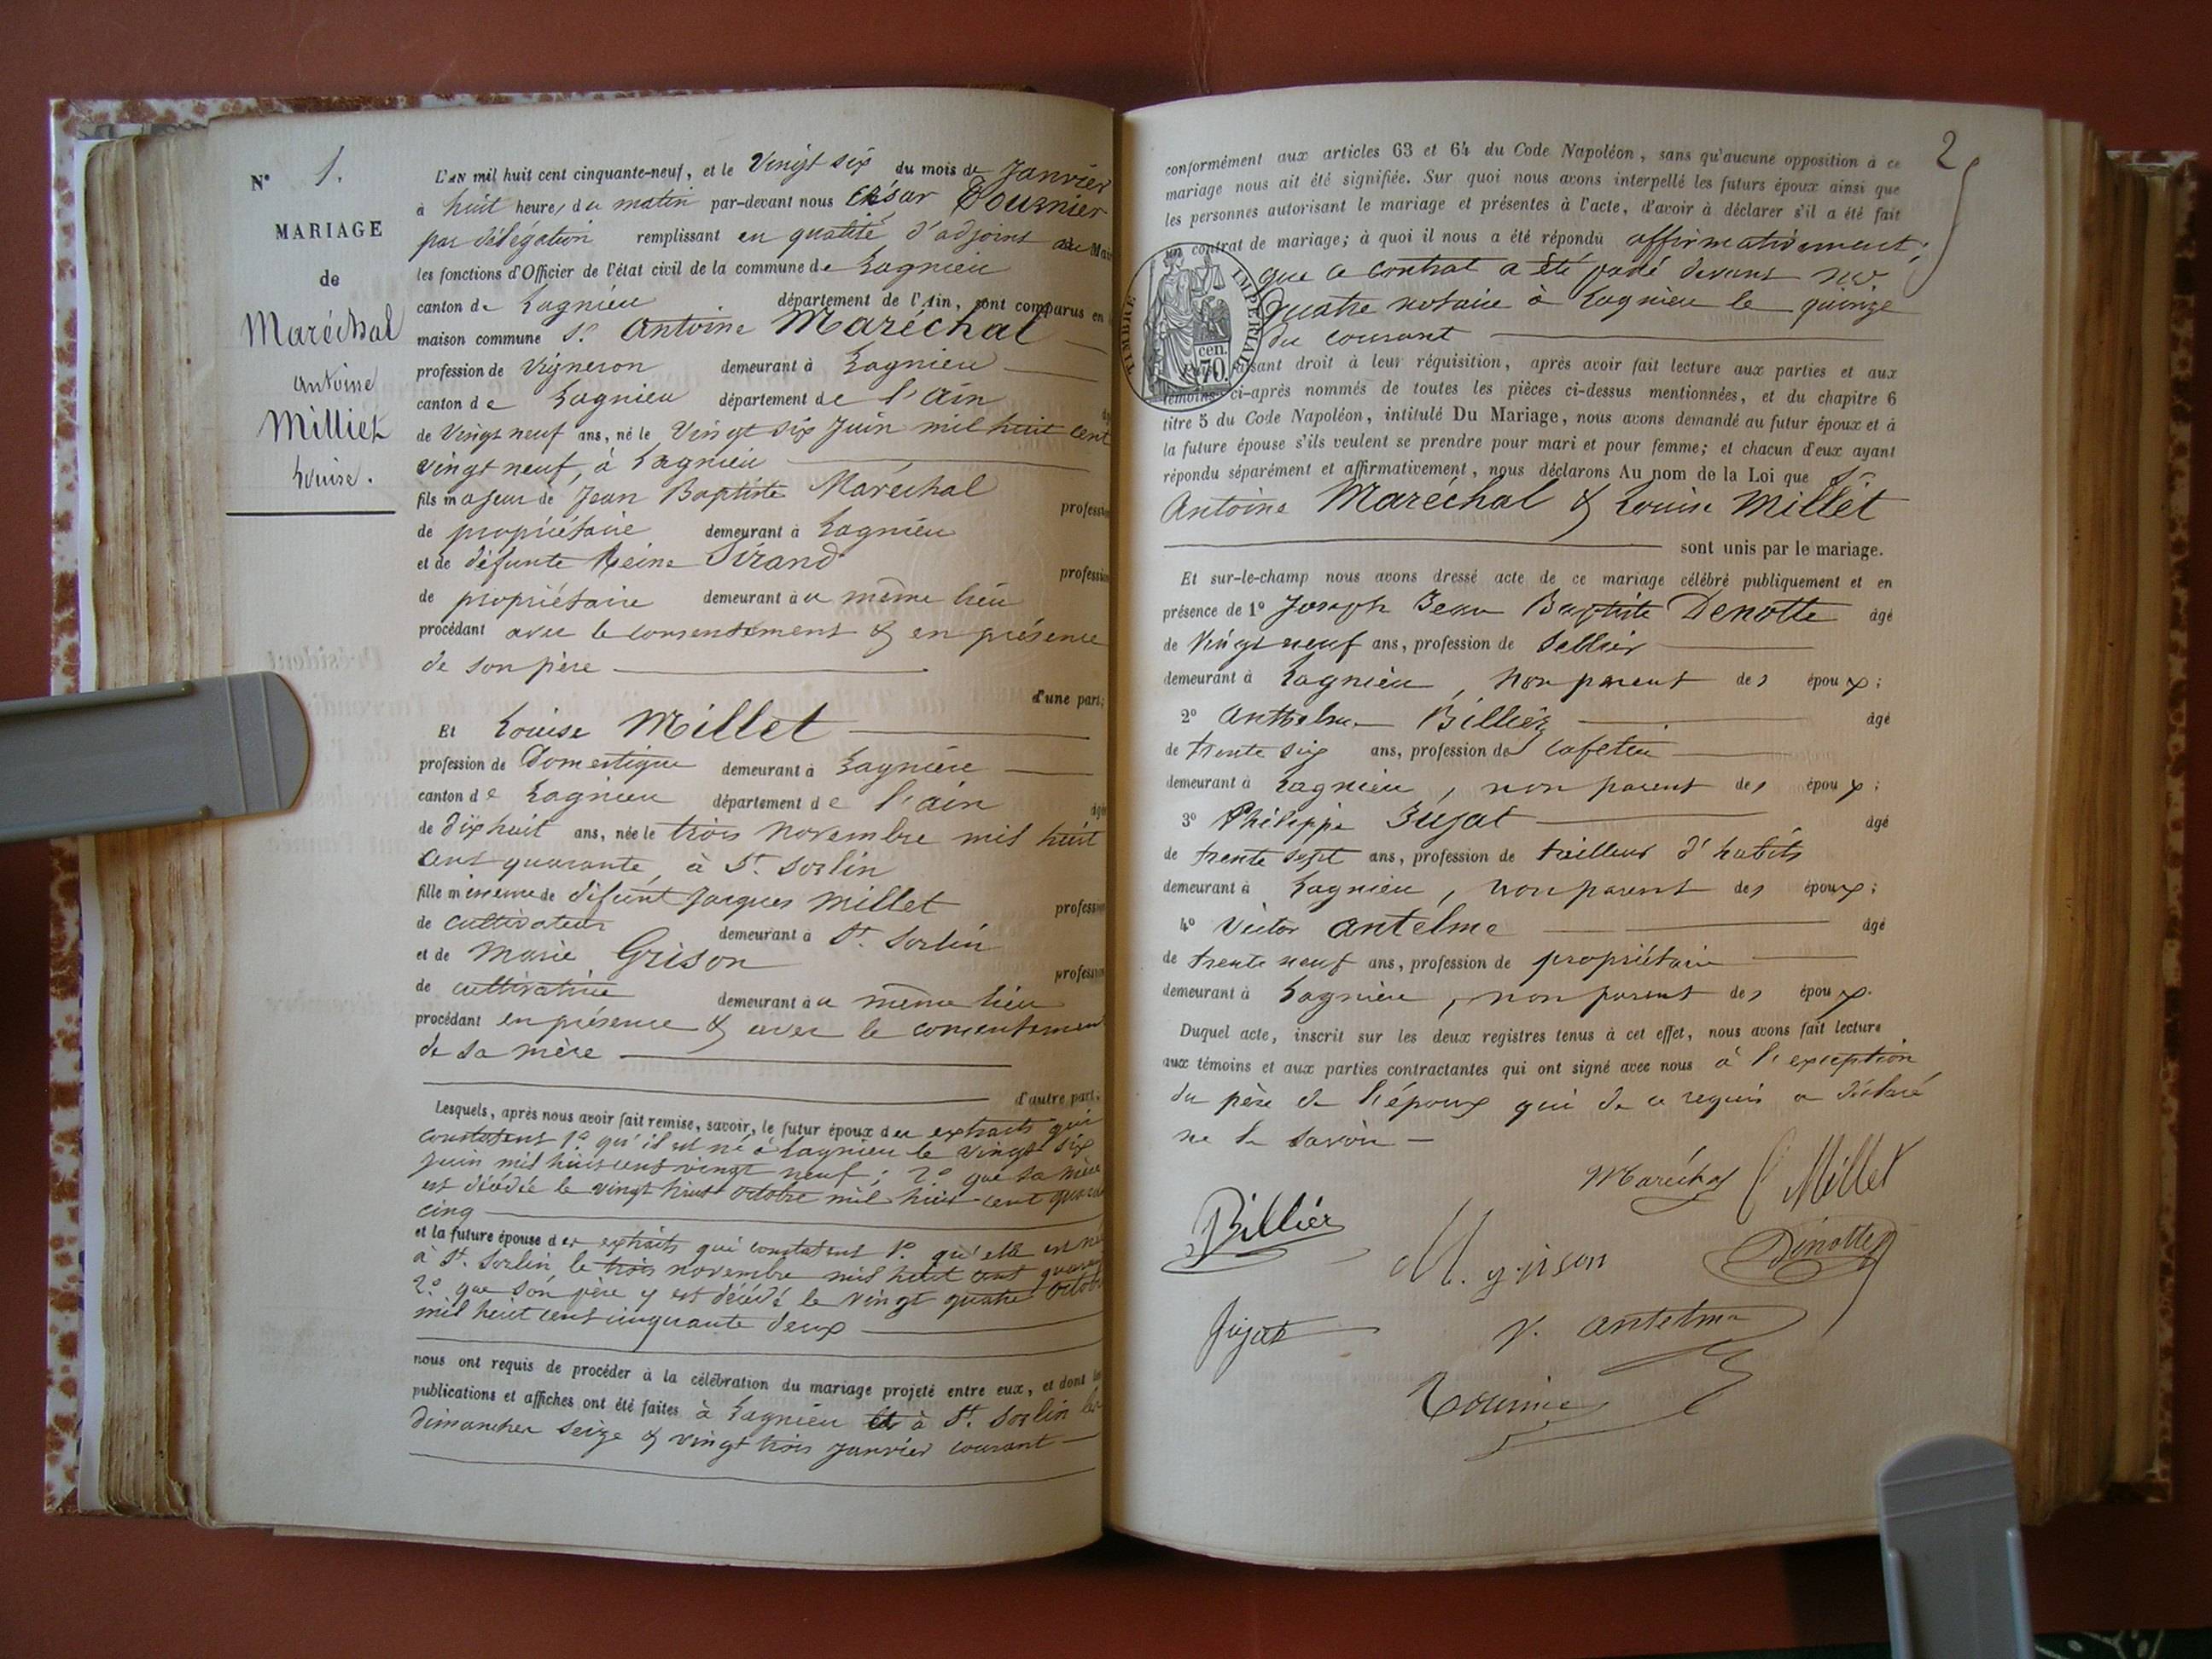 N° 1.
MARIAGE
de
Maréchal
Antoine
Milliet
Louise.
L'AN mil huit cent cinquante-neuf, et le Vingt six du mois de Janvier
à huit heures du matin par-devant nous César Tournier
par délégation remplissant en qualité d'adjoint au Mai
les fonctions d'Officier de l'état civil de la commune de Lagnieu
canton de Lagnieu département de l'Ain, sont comparus en
maison commune Sr. Antoine Maréchal
profession de Vigneron demeurant à Lagnieu
canton de Lagnieu département de l'Ain
de Vingt neuf ans, né le Vingt six Juin mil huit cent
vingt neuf, à Lagnieu
fils majeur de Jean Baptiste Maréchal profession
de propriétaire demeurant à Lagnieu
et de défunte Reine Sirand profession
de propriétaire demeurant à u même lieu
procédant avec le consentement & en présence
de son père
d'une part;
Et Louise Millet
profession de Domestique demeurant à Lagnieu
canton de Lagnieu département de l'ain âgée
de dix huit ans, née le trois novembre mil huit
cent quarante, à St. Sorlin
fille mineure de défunt Jacques Millet profession
de cultivateur demeurant à St. Sorlin
et de Marie Grison profession
de cultivatrice demeurant à u même lieu
procédant en présence & avec le consentement
de sa mère
d'autre part.
Lesquels, après nous avoir fait remise, savoir, le futur époux des extraits qui
constatent 1° qu'il est né à Lagnieu le vingt six
juin mil huit cent vingt neuf; 2° que sa mère
est décédée le vingt huit octobre mil huit cent quarante
cinq
et la future épouse des extraits qui constatent 1° qu'elle est née
à St. Sorlin le trois novembre mil huit cent quarante
2° que son père y est décédé le vingt quatre octobre
mil huit cent cinquante deux
nous ont requis de procéder à la célébration du mariage projeté entre eux, et dont les
publications et affiches ont été faites à Lagnieu et à St. Sorlin les
dimanches seize & vingt trois janvier courant
2
conformément aux articles 63 et 64 du Code Napoléon, sans qu'aucune opposition à ce
mariage nous ait été signifiée. Sur quoi nous avons interpellé les futurs époux ainsi que
les personnes autorisant le mariage et présentes à l'acte, d'avoir à déclarer s'il a été fait
contrat de mariage; à quoi il nous a été répondu affirmativement;
que ce contrat a été passé devant me
quatre notaire à Lagnieu le quinze
du courant
TIMBRE IMPERIAL
70. cen.
Faisant droit à leur réquisition, après avoir fait lecture aux parties et aux
témoins ci-après nommés de toutes les pièces ci-dessus mentionnées, et du chapitre 6
titre 5 du Code Napoléon, intitulé Du Mariage, nous avons demandé au futur époux et à
la future épouse s'ils veulent se prendre pour mari et pour femme; et chacun d'eux ayant
répondu séparément et affirmativement, nous déclarons Au nom de la Loi que Sr
Antoine Maréchal & Louise Millet
sont unis par le mariage.
Et sur-le-champ nous avons dressé acte de ce mariage célébré publiquement et en
présence de 1° Joseph Jean Baptiste Denotte âgé
de Vingt neuf ans, profession de Sellier
demeurant à Lagnieu, non parent des époux;
2° Anthelme Billiéz âgé
de trente six ans, profession de cafetier
demeurant à Lagnieu, non parent des époux;
3° Philippe Jujat âgé
de trente sept ans, profession de tailleur d'habits
demeurant à Lagnieu, non parent des époux;
4° Victor Antelme âgé
de trente neuf ans, profession de propriétaire
demeurant à Lagnieu, non parent des époux.
Duquel acte, inscrit sur les deux registres tenus à cet effet, nous avons fait lecture
aux témoins et aux parties contractantes qui ont signé avec nous à l'exception
du père de l'époux qui de ce requis a déclaré
ne le savoir
Maréchal Millet
Billiéz M. grison Dénotte
Jujat V. antelme
Tournier